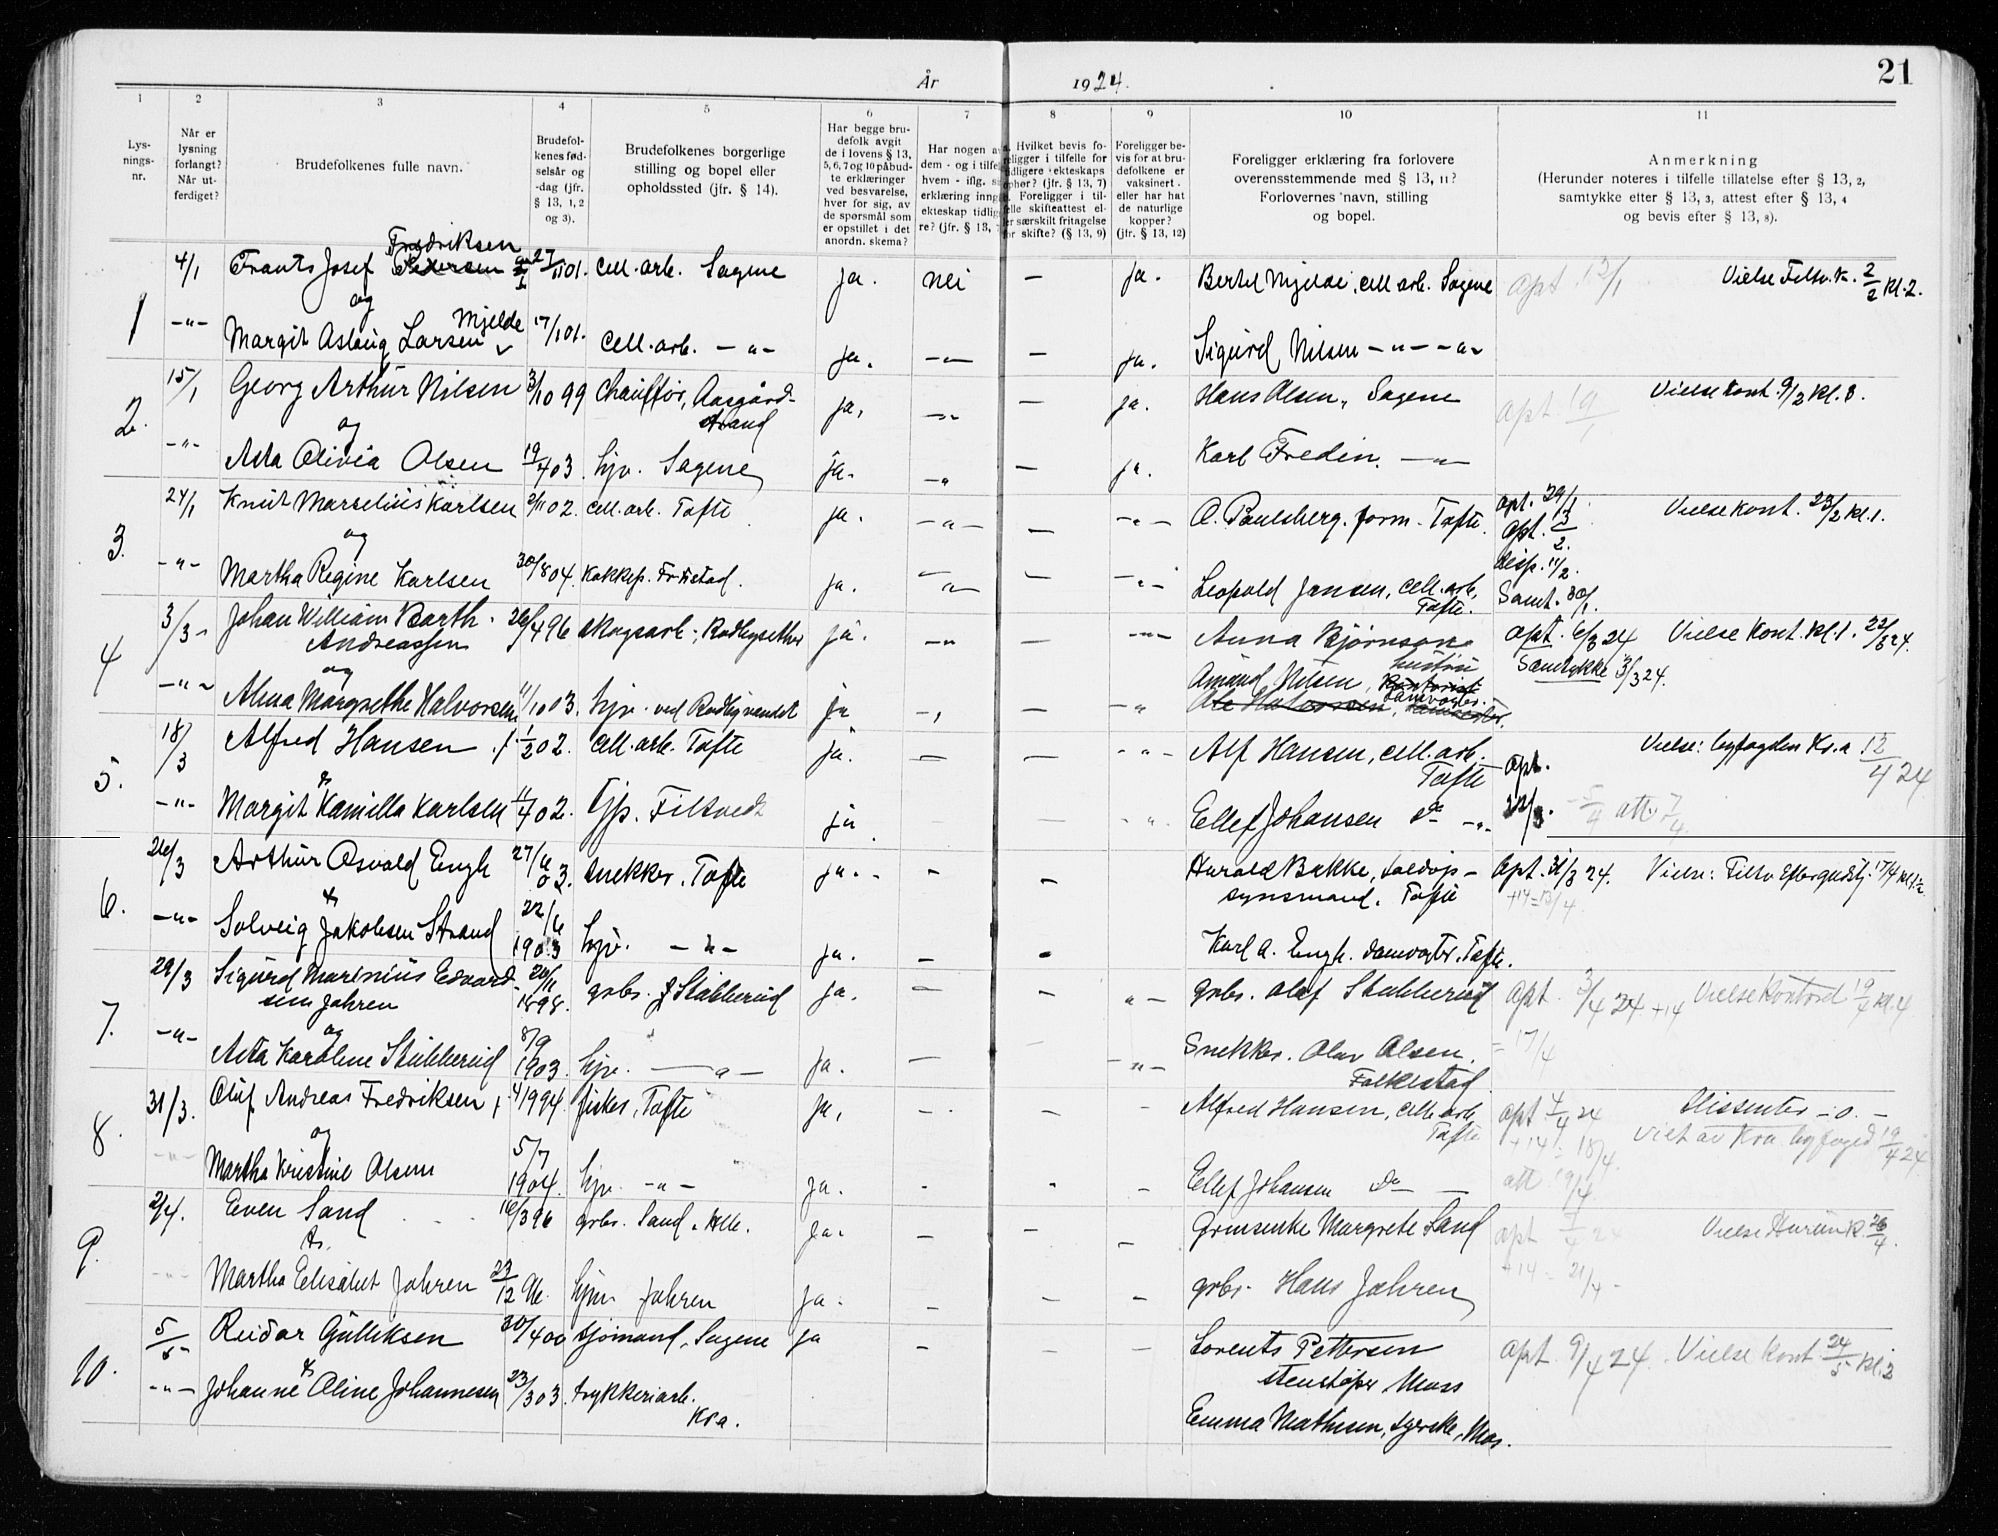 21
År 1924.
1 2 3 4 5 6 7 8 9 10 11
Lys-
nings-
nr.
Når er
lysning
forlangt?
Når ut-
ferdiget?
Brudefolkenes fulle navn.
Brudefol-
kenes fød-
selsår og
-dag (jfr.
§ 13, 1, 2
og 3).
Brudefolkenes borgerlige
stilling og bopel eller
opholdssted (jfr. § 14).
Har begge bru-
defolk avgit
de i lovens § 13,
5, 6, 7 og 10 påbud-
te erklæringer
ved besvarelse,
hver for sig, av
de spørsmål som
er opstillet i det
anordn. skema?
Har nogen a
dem - og i tilfe
hvem - iflg. s
erklæring inng
ekteskap tidlig
re? (jfr. § 13,
Hvilket bevis fo-
religger i tilfelle for
tidligere ekteskaps
ophør? (jfr. § 13, 7)
Foreligger i til-
felle skifteattest el-
er særskilt fritagelse
for skifte? (§ 13, 9)
Foreligger be-
vis for at bru-
defolkene er
vaksinert
eller har hat
de naturlige
kopper?
(jfr. § 13, 12)
Foreligger erklæring fra forlovere
overensstemmende med § 13, 11?
Forlovernes navn, stilling
og bopel.
Anmerkning
(Herunder noteres i tilfelle tillatelse efter § 13, 2,
samtykke efter § 13, 3, attest efter § 13, 4
og bevis efter § 13, 8).
Fredriksen
1 4/1 Frants Josef Pedersen 27/1 01. cell. arb. Sagene ja. nei — ja. Bertel Mjelde, cell arb. Sagene apt. 13/1 Vielse Filtv. K. 2/2 kl. 2.
og
Mjelde
-"- Margit Aslaug Larsen 17/1 01. cell. arb. -"- ja. -"- — ja. Sigurd Nilsen -"- -"-
2. 15/1 Georg Arthur Nilsen 3/10 99 Chauffør, Aasgård- ja. -"- — ja. Hans Olsen, Sagene apt. 19/1 Vielse Kont. 9/2 kl. 3.
strand
og
-"- Asta Olivia Olsen 19/4 03. hjv. Sagene ja. -"- — ja. Karl Fredin. -"-
3. 24/1 Knut Marselius Karlsen 2/11 02. cell. arb. Tofte ja. -"- — -"- O. Paulsberg. form. Tofte. apt. 29/1. Vielse kont. 23/2 kl. 1.
apt. 3/2.
og
disp. 11/2.
-"- Martha Regine Karlsen 30/8 04. kokkep. ja. -"- — -"- Leopold Jansen, cell. arb. Samt. 30/1.
Tofte.
4 3/3 Johan William Barth 26/4 96 skogsarb. ja. -"- — -"- Anna Bjørnson apt. 6/3 24 Vielse Kont. kl. 1. 22/3 24.
Andreassen hustru Samtykke 3/3 24.
og
-"- Alma Margrethe Halvorsen 11/10 03. hjv. ved ja -"- -"- Amund Nilsen,
5. 18/3 Alfred Hansen 1/2 02. cell. arb. Tofte ja. — — -"- Alf Hansen, cell. arb. apt. Vielse: byfogden Kr.a 12/4 24
Tofte
&
-"- Margit Kamilla Karlsen 11/7 02. Tjp. Filtvedt ja — -"- Ellef Johansen do -"- 22/3. 5/4 att. 7/4.
6. 26/3 Arthur Osvald Engh 27/6 03. snekker. Tofte ja. - — Harald Bakke, apt. 31/3 24. Vielse: Filtv 17/4
synsmand. Tofte +14=13/4
&
-"- Solveig Jakobsen Strand 22/6 1903 hjv. -"- ja. — - Karl A. Engh. damvogter. Tofte.
7. 29/3 Sigurd Marinius Edvard- 20/11 1898. grbr. Stubberud ja. — — -"- grbr. Olaf Stubberud apt. 3/4 24 +14 Vielse Kontoret 19/4 kl. 4
sen Jahren = 17/4
og
-"- Asta Karoline Stubberud 8/9 1903. hjv. -"- ja. — -"- Snekker. Olav Olsen.
Folkestad
8. 31/3. Oluf Andreas Fredriksen 1994. fisker, Tofte ja. - — - Alfred Hansen, cell. arb. apt. 4/4 24 Dissenter -o.-
Tofte +14 = 18/4 Viet av Kra byfoged 19/4 24
og
-"- Martha Kristine Olsen 5/7 1904. hjv. -"- ja. - - — Ellef Johansen do — att 19/4
9. 2/4. Even Sand 16/3 96 grbr. Sand. ja. — — — Margrete Sand apt 7/4 24 Vielse Hurum K. 26/4.
&.
-"- Martha Elisabet Jahren 23/12 hjm. Jahren ja. — — — grbr. Hans Jahren +14 = 21/4 -
10. 5/5 Reidar Gulliksen 30/4 00 sjømand, Sagene ja — — — Lorents Pettersen apt. 9/4 24. Vielse Kont. 24/5 kl. 2
stenstøper Moss
&
-"- Johanne Oline Johannesen 23/3 03. trykkeriarb.
Kra.
Emma Mathisen, syerske, Mos.